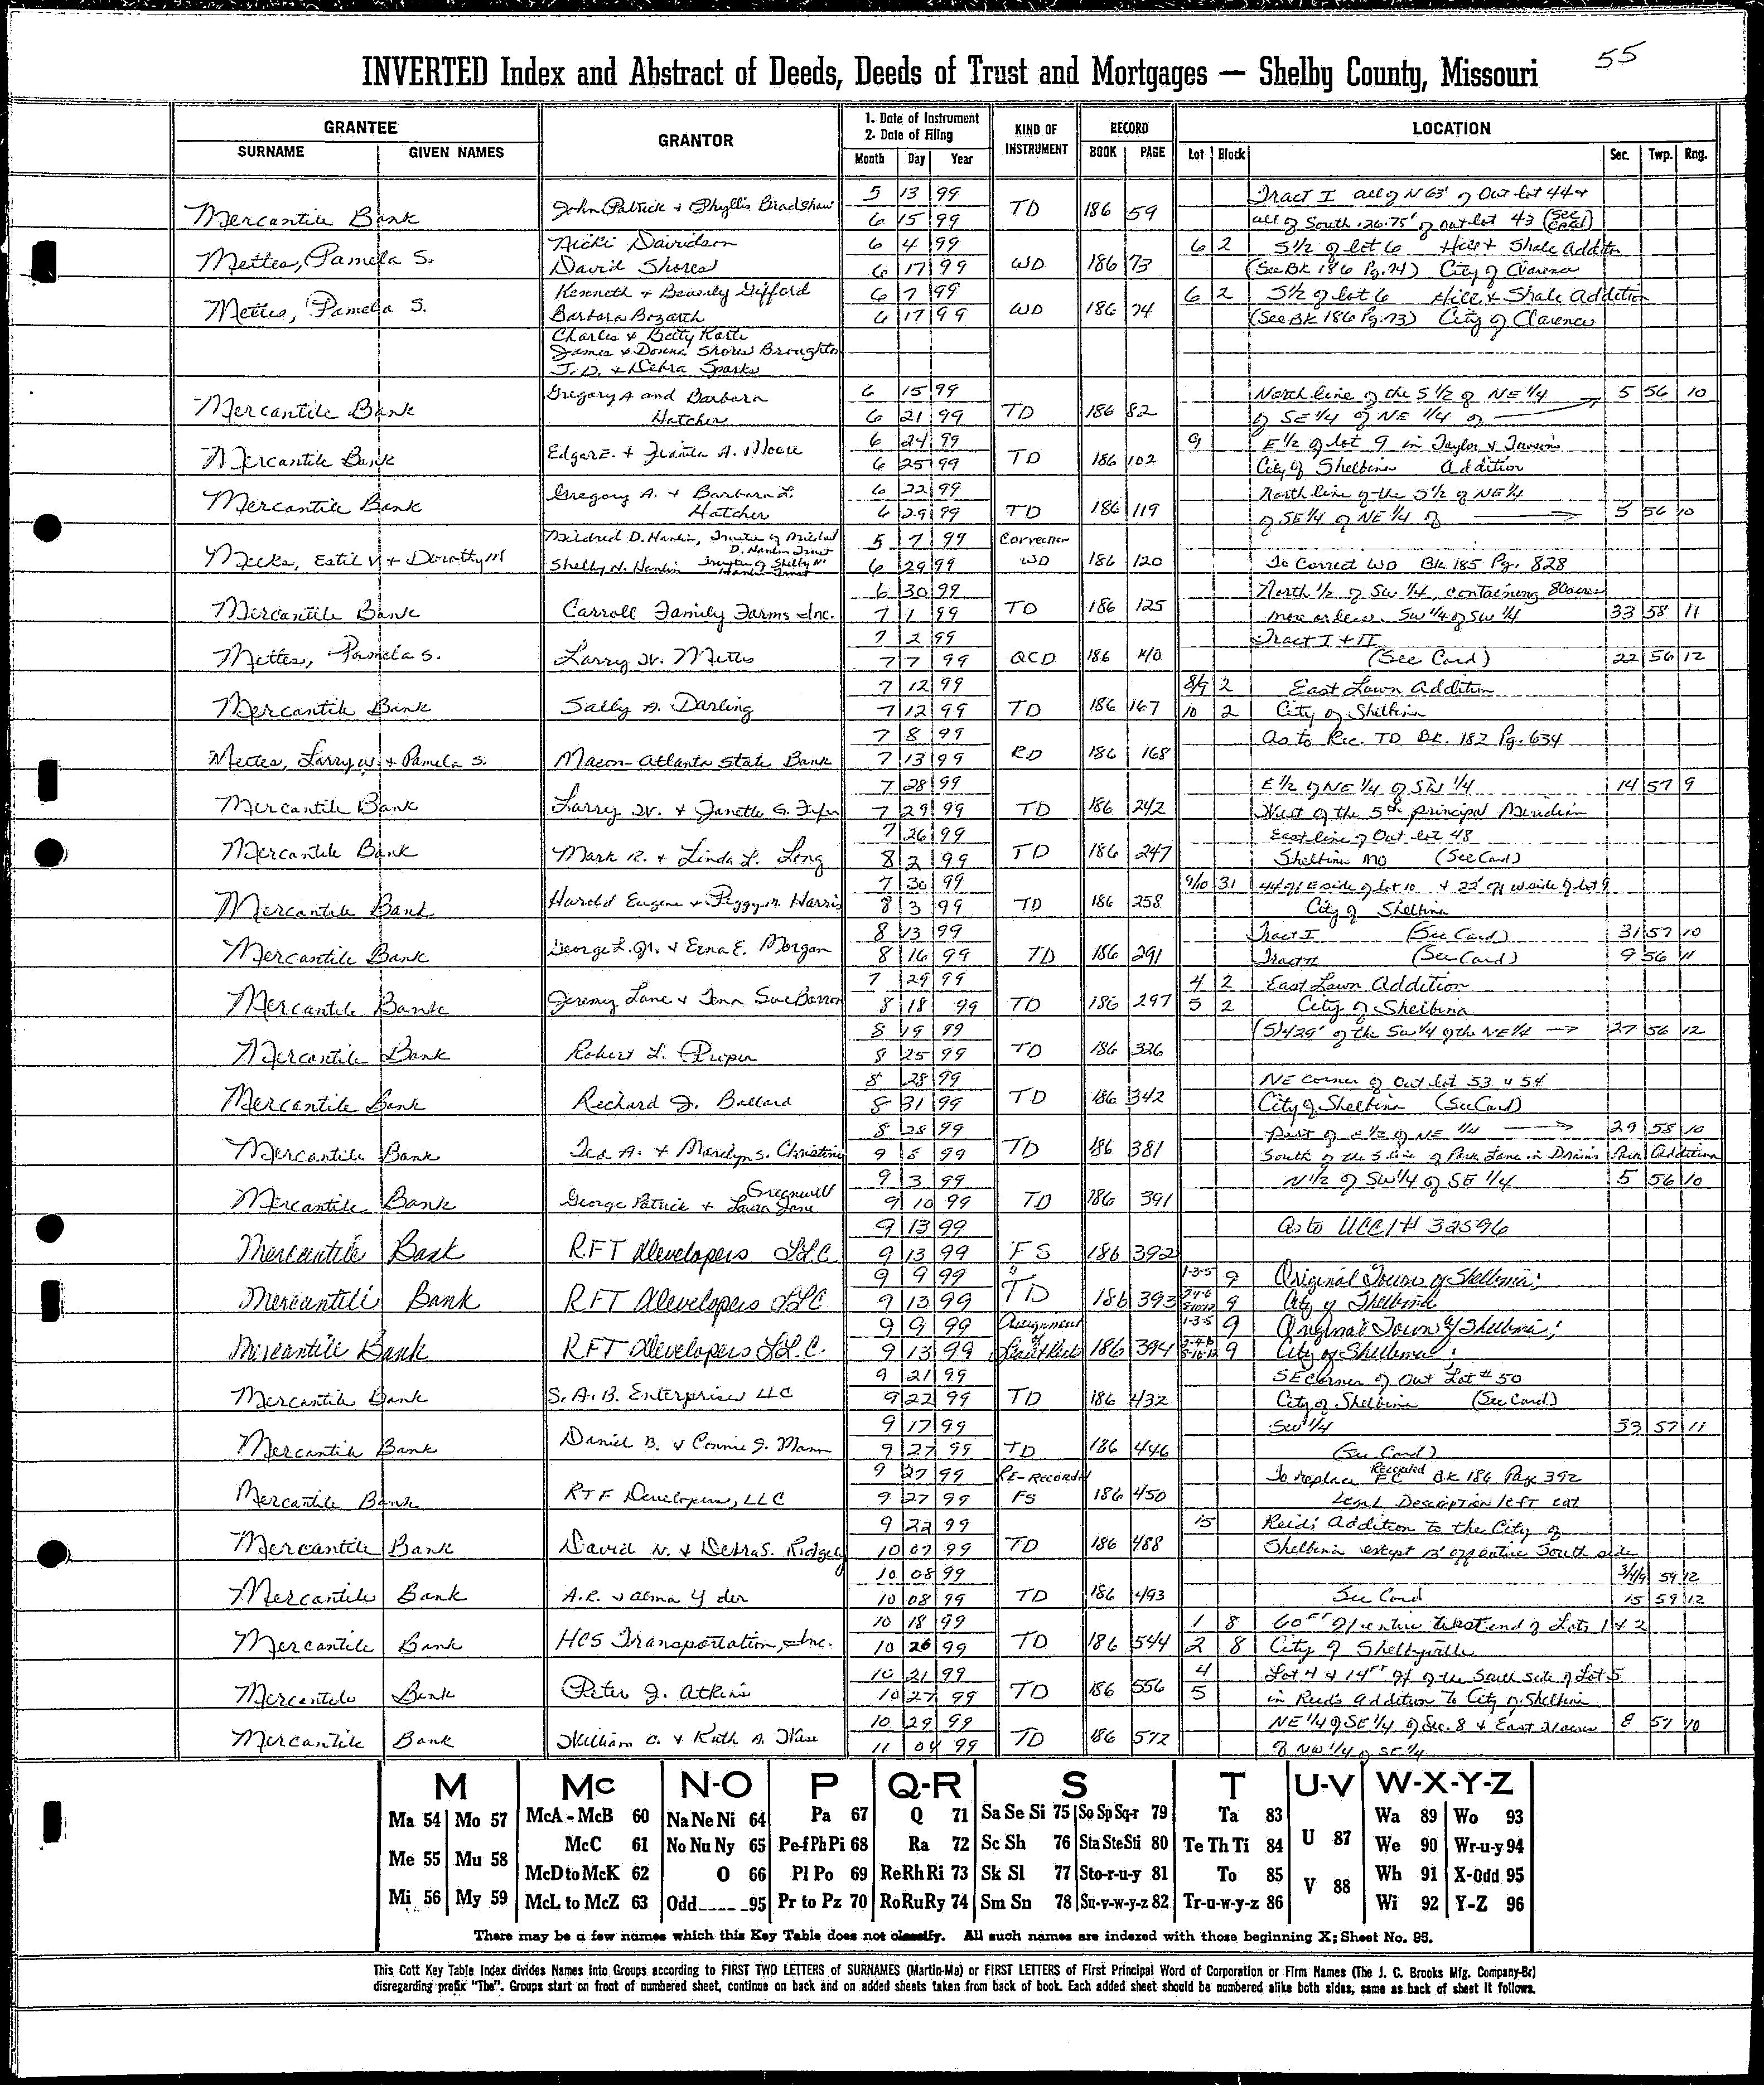 55
INVERTED Index and Abstract of Deeds, Deeds of Trust and Mortgages — Shelby County, Missouri
GRANTEE GRANTOR 1. Date of Instrument 2. Date of Filing KIND OF INSTRUMENT RECORD LOCATION
SURNAME GIVEN NAMES Month Day Year BOOK PAGE Lot Block Sec. Twp. Rng.
5 13 99 Tract I all of N 63' of Out lot 44 +
Mercantile Bank John Patrick + Phyllis Bradshaw 6 15 99 TD 186 59 all of South 126.75' of out lot 43 (See Card)
Nicki Davidson 6 4 99 6 2 S 1/2 of lot 6 Hill + Shale Addition
Mettes, Pamela S. David Shores 6 17 99 WD 186 73 (See BK 186 Pg. 74) City of Clarence
Kenneth + Beverly Gifford 6 7 99 6 2 S 1/2 of lot 6 Hill & Shale Addition
Mettes, Pamela S. Barbara Bozarth 6 17 99 WD 186 74 (See BK 186 Pg. 73) City of Clarence
Charles + Betty
James & Donna Shores Broughton
J.D. + Debra Sparks
Gregory A and Barbara 6 15 99 North line of the S 1/2 of NE 1/4 5 56 10
Mercantile Bank Hatcher 6 21 99 TD 186 82 of SE 1/4 of NE 1/4 of
6 24 99 9 E 1/2 of lot 9 in Taylor &
Mercantile Bank Edgar E. + A. Moore 6 25 99 TD 186 102 City of Shelbina Addition
Gregory A. + Barbara L. 6 22 99 North line of the S 1/2 of NE 1/4
Mercantile Bank Hatcher 6 29 99 TD 186 119 of SE 1/4 of NE 1/4 of 5 56 10
Mildred D. Hanlin, Trustee of Mildred D. Hanlin Trust 5 7 99 Correction
Estil V + Dorothy M Shelby N. Hanlin Trustee of Shelby N. Hanlin Trust 6 29 99 WD 186 120 To Correct WD BK 185 Pg. 828
6 30 99 North 1/2 of SW 1/4, containing 80 acres
Mercantile Bank Carroll Family Farms Inc. 7 1 99 TD 186 125 more or less. SW 1/4 of SW 1/4 33 58 11
7 2 99 Tract I + II
Mettes, Pamela S. Larry W. Mettes 7 7 99 QCD 186 140 (See Card) 22 56 12
7 12 99 8/9 2 East Lawn Addition
Mercantile Bank Sally A. Darling 7 12 99 TD 186 167 10 2 City of Shelbina
7 8 99 As to Rec. TD BK. 182 Pg. 634
Mettes, Larry W. + Pamela S. Macon-Atlanta State Bank 7 13 99 RD 186 168
7 28 99 E 1/2 of NE 1/4 of SW 1/4 14 57 9
Mercantile Bank Larry W. + Janette G. 7 29 99 TD 186 242 West of the 5th principal Meridian
7 26 99 East line of Out lot 48
Mercantile Bank Mark R. + Linda L. Long 8 2 99 TD 186 247 Shelbina MO (See Card)
7 30 99 9/10 31 44' of E side of lot 10 + 22' off W side of lot 9
Mercantile Bank Harold Eugene + Peggy M. Harris 8 3 99 TD 186 258 City of Shelbina
8 13 99 Tract I (See Card) 31 57 10
Mercantile Bank George L. Jr. + Erna E. Morgan 8 16 99 TD 186 291 Tract II (See Card) 9 56 11
7 29 99 4 2 East Lawn Addition
Mercantile Bank Jeremy Lane + Tenn Sue Barron 8 18 99 TD 186 297 5 2 City of Shelbina
8 19 99 (S) 429' of the SW 1/4 of the NE 1/4 27 56 12
Mercantile Bank Robert L. Proper 8 25 99 TD 186 326
8 28 99 NE corner of Out lot 53 & 54
Mercantile Bank Richard J. Ballard 8 31 99 TD 186 342 City of Shelbina (See Card)
8 28 99 part of E 1/2 of NE 1/4 29 58 10
Mercantile Bank Ted A. + Marilyn S. Christine 9 8 99 TD 186 381 South of the S line of Park Lane in Park Addition
9 3 99 N 1/2 of SW 1/4 of SE 1/4 5 56 10
Mercantile Bank George Patrick + Laura Jane Greenwell 9 10 99 TD 186 391
9 13 99 As to UCC 1 # 32596
Mercantile Bank RFT Developers LLC 9 13 99 FS 186 392
9 9 99 1-3-5 9 Original Town of Shelbina;
Mercantile Bank RFT Developers LLC 9 13 99 TD 186 393 2-4-6 8-10-12 9 City of Shelbina
9 9 99 Assignment 1-3-5 9 Original Town of Shelbina;
Mercantile Bank RFT Developers LLC. 9 13 99 186 394 2-4-6 8-10-12 9 City of Shelbina
9 21 99 SE Corner of Out Lot # 50
Mercantile Bank S.A.B. Enterprises LLC 9 22 99 TD 186 432 City of Shelbina (See Card)
9 17 99 SW 1/4 33 57 11
Mercantile Bank Daniel B. & Connie J. Mann 9 27 99 TD 186 446 (See Card)
9 27 99 RE-RECORDED To replace Recorded BK 186 Page 392
Mercantile Bank RTF Developers, LLC 9 27 99 FS 186 450 Legal Description left out
9 22 99 15 Reid's Addition to the City of
Mercantile Bank David N. & Debra S. Ridgely 10 07 99 TD 186 488 Shelbina except 13' off entire South side
10 08 99 3/4/9 59 12
Mercantile Bank A.R. & Alma Yoder 10 08 99 TD 186 493 See Card 15 59 12
10 18 99 1 8 60 FT of entire West end of Lots 1 & 2
Mercantile Bank HCS Transportation, Inc. 10 26 99 TD 186 544 2 8 City of Shelbyville
10 21 99 4 Lot 4 & 14 FT of of the South side of Lot 5
Mercantile Bank Peter J. Atkins 10 27 99 TD 186 556 5 in Reid's Addition to City of Shelbina
10 29 99 NE 1/4 of SE 1/4 of Sec. 8 & East 21 acres 8 57 10
Mercantile Bank William C. & Ruth A. 11 04 99 TD 186 572 of NW 1/4 of SE 1/4
M Mc N-O P Q-R S T U-V W-X-Y-Z
Ma 54 Mo 57 McA - McB 60 Na Ne Ni 64 Pa 67 Q 71 Sa Se Si 75 So Sp Sq-r 79 Ta 83 U 87 Wa 89 Wo 93
Me 55 Mu 58 McC 61 No Nu Ny 65 Pe-f Ph Pi 68 Ra 72 Sc Sh 76 Sta Ste Sti 80 Te Th Ti 84 We 90 Wr-u-y 94
McD to McK 62 O 66 Pl Po 69 Re Rh Ri 73 Sk Sl 77 Sto-r-u-y 81 To 85 V 88 Wh 91 X-Odd 95
Mi 56 My 59 McL to McZ 63 Odd 95 Pr to Pz 70 Ro Ru Ry 74 Sm Sn 78 Su-v-w-y-z 82 Tr-u-w-y-z 86 Wi 92 Y-Z 96
There may be a few names which this Key Table does not classify. All such names are indexed with those beginning X; Sheet No. 95.
This Cott Key Table Index divides Names into Groups according to FIRST TWO LETTERS of SURNAMES (Martin-Ma) or FIRST LETTERS of First Principal Word of Corporation or Firm Names (The J. C. Brooks Mfg. Company-Br)
disregarding prefix "The". Groups start on front of numbered sheet, continue on back and on added sheets taken from back of book. Each added sheet should be numbered alike both sides, same as back of sheet it follows.